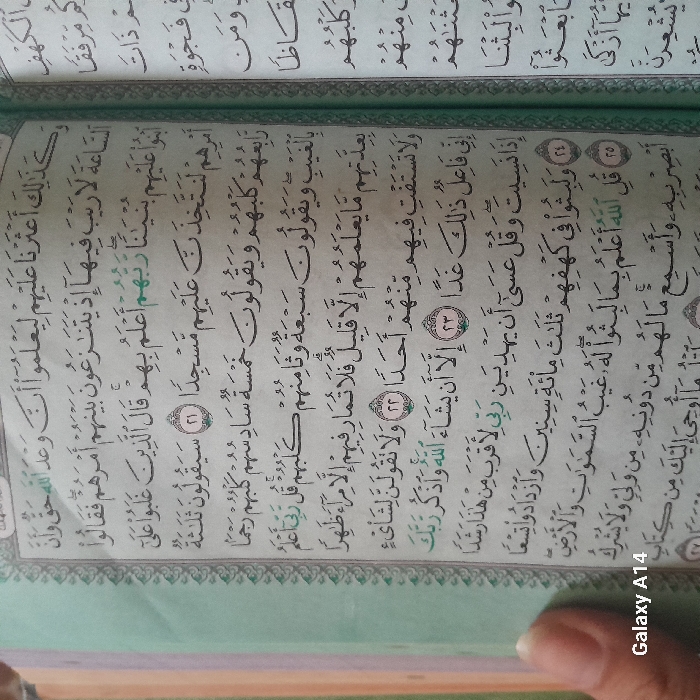 وَكَذَٰلِكَ أَعْثَرْنَا عَلَيْهِمْ لِيَعْلَمُوٓا۟ أَنَّ وَعْدَ ٱللَّهِ حَقٌّ وَأَنَّ
ٱلسَّاعَةَ لَا رَيْبَ فِيهَآ إِذْ يَتَنَٰزَعُونَ بَيْنَهُمْ أَمْرَهُمْ ۖ فَقَالُوا۟
ٱبْنُوا۟ عَلَيْهِم بُنْيَٰنًا ۖ رَّبُّهُمْ أَعْلَمُ بِهِمْ ۚ قَالَ ٱلَّذِينَ غَلَبُوا۟ عَلَىٰٓ
أَمْرِهِمْ لَنَتَّخِذَنَّ عَلَيْهِم مَّسْجِدًا ٢١ سَيَقُولُونَ ثَلَٰثَةٌ
رَّابِعُهُمْ كَلْبُهُمْ وَيَقُولُونَ خَمْسَةٌ سَادِسُهُمْ كَلْبُهُمْ رَجْمًۢا
بِٱلْغَيْبِ ۖ وَيَقُولُونَ سَبْعَةٌ وَثَامِنُهُمْ كَلْبُهُمْ ۚ قُل رَّبِّىٓ أَعْلَمُ
بِعِدَّتِهِم مَّا يَعْلَمُهُمْ إِلَّا قَلِيلٌ ۗ فَلَا تُمَارِ فِيهِمْ إِلَّا مِرَآءً ظَٰهِرًا
وَلَا تَسْتَفْتِ فِيهِم مِّنْهُمْ أَحَدًا ٢٢ وَلَا تَقُولَنَّ لِشَا۟ىْءٍ
إِنِّى فَاعِلٌ ذَٰلِكَ غَدًا ٢٣ إِلَّآ أَن يَشَآءَ ٱللَّهُ ۚ وَٱذْكُر رَّبَّكَ
إِذَا نَسِيتَ وَقُلْ عَسَىٰٓ أَن يَهْدِيَنِ رَبِّى لِأَقْرَبَ مِنْ هَٰذَا رَشَدًا
٢٤ وَلَبِثُوا۟ فِى كَهْفِهِمْ ثَلَٰثَ مِا۟ئَةٍ سِنِينَ وَٱزْدَادُوا۟ تِسْعًا
٢٥ قُلِ ٱللَّهُ أَعْلَمُ بِمَا لَبِثُوا۟ ۖ لَهُۥ غَيْبُ ٱلسَّمَٰوَٰتِ وَٱلْأَرْضِ ۖ
أَبْصِرْ بِهِۦ وَأَسْمِعْ ۚ مَا لَهُم مِّن دُونِهِۦ مِن وَلِىٍّ وَلَا يُشْرِكُ
أُوحِىَ إِلَيْكَ مِن كِتَابِ
Galaxy A14